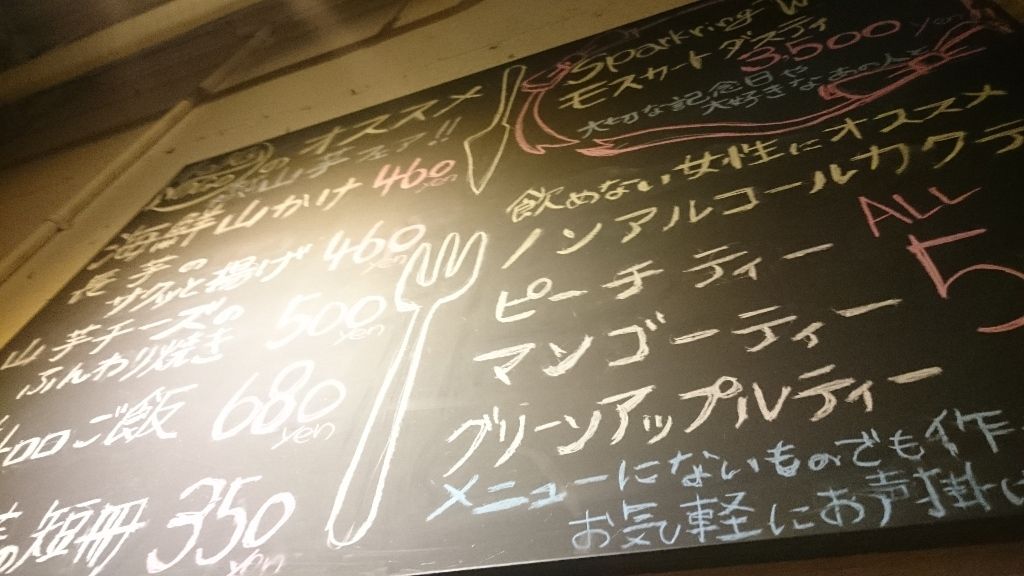 オススメ
山芋フェア!!
海鮮山かけ 460 yen
長芋の
サクッと揚げ 460 yen
山芋チーズの
ふんわり焼き 500 yen
トロロご飯 680 yen
の短冊 350 yen
Sparkring-W
モスカートダスティ
3,500 yen
大切な記念日だ
大好きなあの人と
飲めない女性にオススメ
ノンアルコールカクテ
ピーチティー
マンゴーティー
グリーンアップルティー
ALL
5
メニューにないものでも作
お気軽にお声掛け